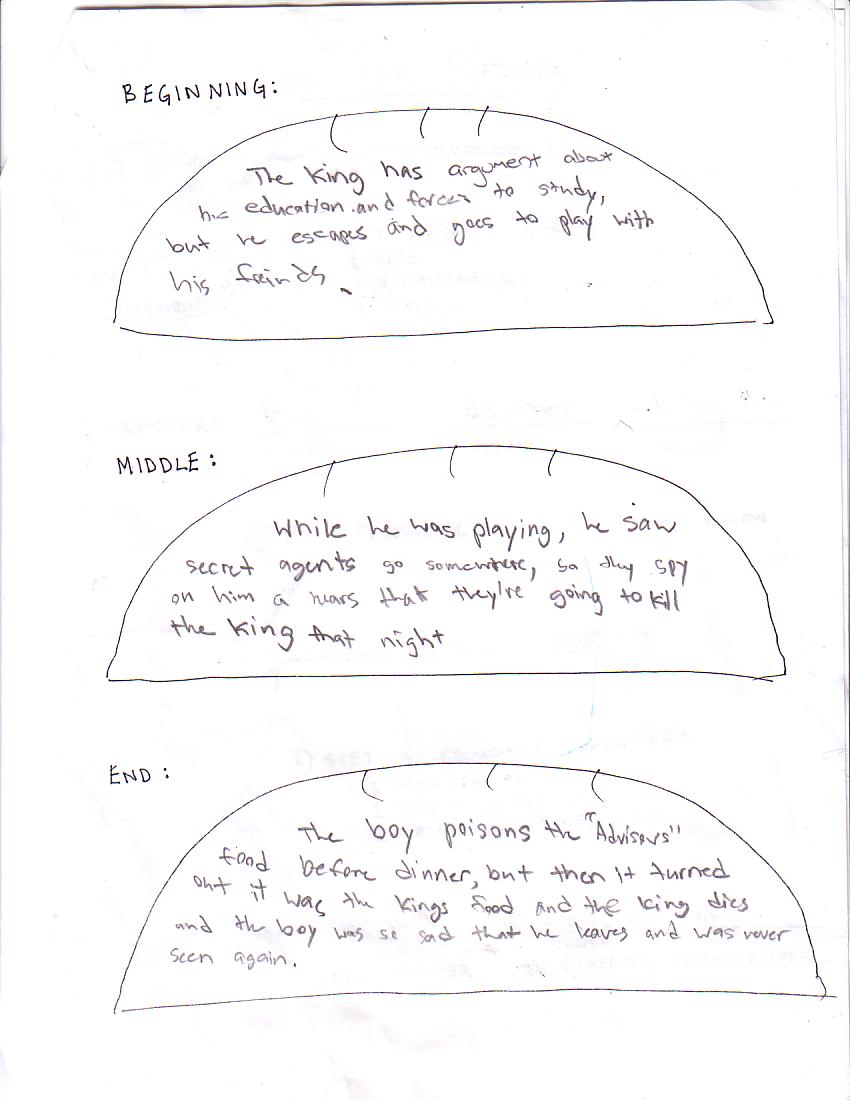 BEGINNING:
The King has argument about
his education. and forces to study,
but he escapes and goes to play with
his freinds.
MIDDLE:
While he was playing, he saw
secret agents go somewhere, so they spy
on him a hears that they're going to kill
the king that night
END:
The boy poisons the "Advisors"
food before dinner, but then it turned
out it was the kings food and the king dies
and the boy was so sad that he leaves and was never
seen again.